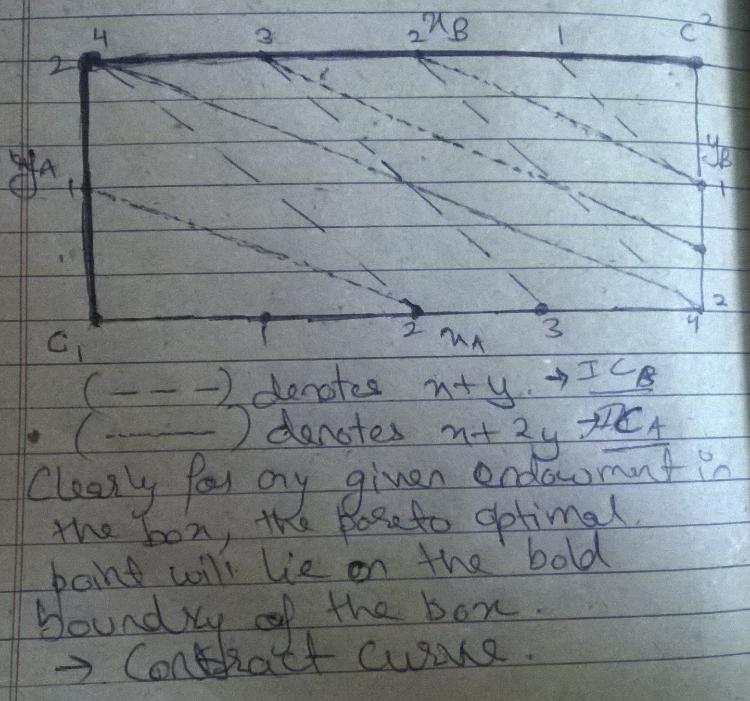 4 3 2 xB 1 C2
2
yA
yB
1 1
2
C1 1 2 xA 3 4
(- - -) denotes x+y. → ICB
• (-----) denotes x+2y → ICA
Clearly for any given endowment in
the box, the pareto optimal
point will lie on the bold
boundry of the box.
→ Contract curve.